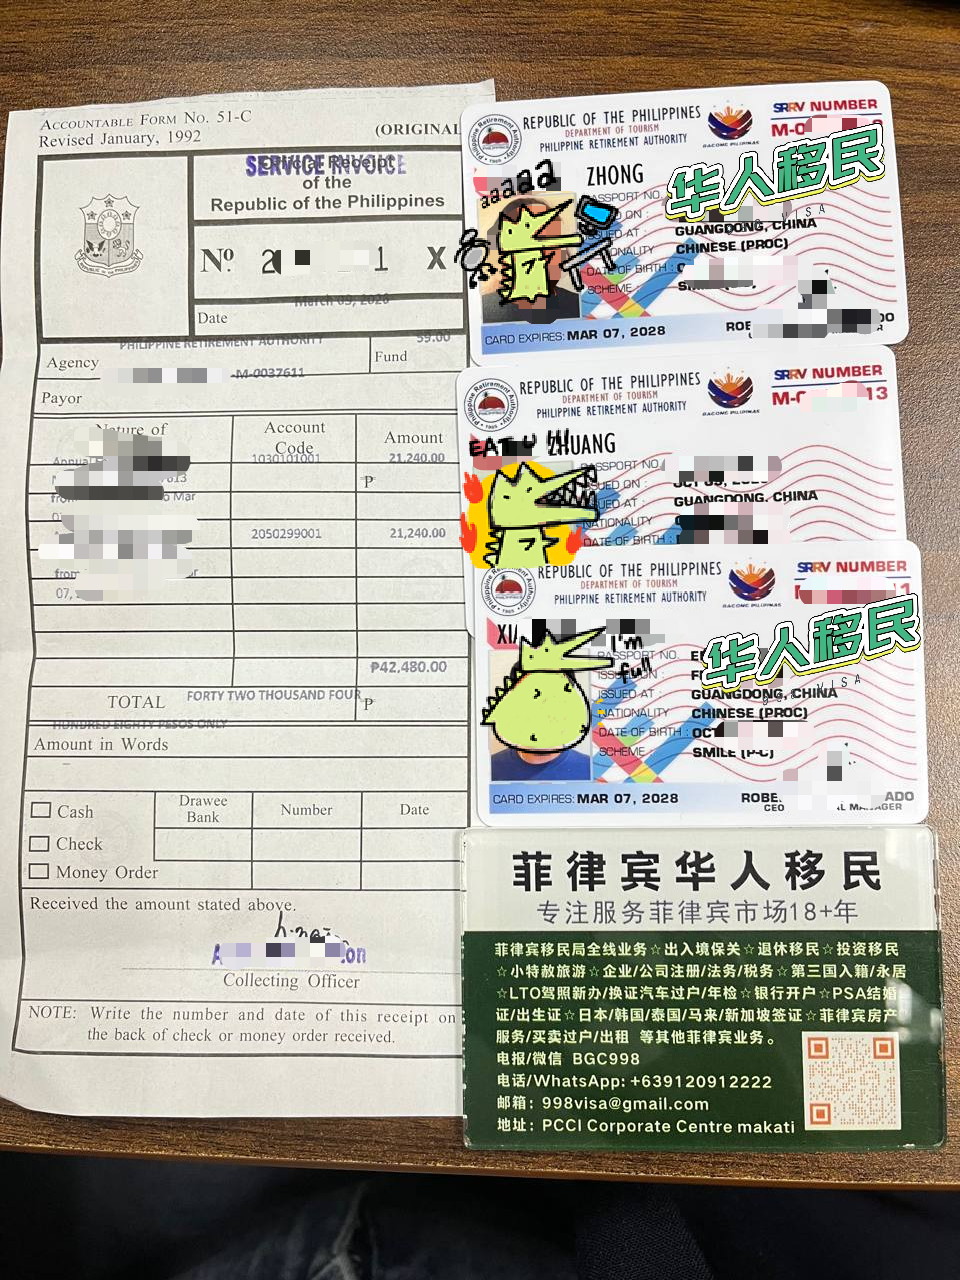 ACCOUNTABLE FORM NO. 51-C
Revised January, 1992
(ORIGINAL
Official Receipt
SERVICE INVOICE
of the
Republic of the Philippines
Nº 2 1 X
Date
PHILIPPINE RETIREMENT AUTHORITY
59.00
Agency
Fund
-M-0037611
Payor
Nature of
Account
Code
Amount
1030101001
21,240.00
P
2050299001
21,240.00
from
07,
₱42,480.00
TOTAL
FORTY TWO THOUSAND FOUR
P
HUNDRED EIGHTY PESOS ONLY
Amount in Words
Cash
Check
Money Order
Drawee
Bank
Number
Date
Received the amount stated above.
Collecting Officer
NOTE: Write the number and date of this receipt on
the back of check or money order received.
REPUBLIC OF THE PHILIPPINES
DEPARTMENT OF TOURISM
PHILIPPINE RETIREMENT AUTHORITY
SRRV NUMBER
ZHONG
华人移民
aaaaa
PASSPORT NO.
GUANGDONG, CHINA
CHINESE (PROC)
DATE OF BIRTH :
SCHEME :
CARD EXPIRES: MAR 07, 2028
REPUBLIC OF THE PHILIPPINES
DEPARTMENT OF TOURISM
PHILIPPINE RETIREMENT AUTHORITY
SRRV NUMBER
EAT U !!!
ZHUANG
PASSPORT NO.
ISSUED AT :
GUANGDONG, CHINA
NATIONALITY
DATE OF BIRTH :
REPUBLIC OF THE PHILIPPINES
DEPARTMENT OF TOURISM
PHILIPPINE RETIREMENT AUTHORITY
SRRV NUMBER
I'm
full
华人移民
PASSPORT NO.
ISSUED AT :
GUANGDONG, CHINA
NATIONALITY
CHINESE (PROC)
DATE OF BIRTH : OCT
SCHEME :
SMILE (P-C)
CARD EXPIRES: MAR 07, 2028
菲律宾华人移民
专注服务菲律宾市场18+年
菲律宾移民局全线业务☆出入境保关☆退休移民☆投资移民
☆小特赦旅游☆企业/公司注册/法务/税务☆第三国入籍/永居
☆LTO驾照新办/换证汽车过户/年检☆银行开户☆PSA结婚
证/出生证☆日本/韩国/泰国/马来/新加坡签证☆菲律宾房产
服务/买卖过户/出租 等其他菲律宾业务。
电报/微信 BGC998
电话/WhatsApp: +639120912222
邮箱：998visa@gmail.com
地址：PCCI Corporate Centre makati